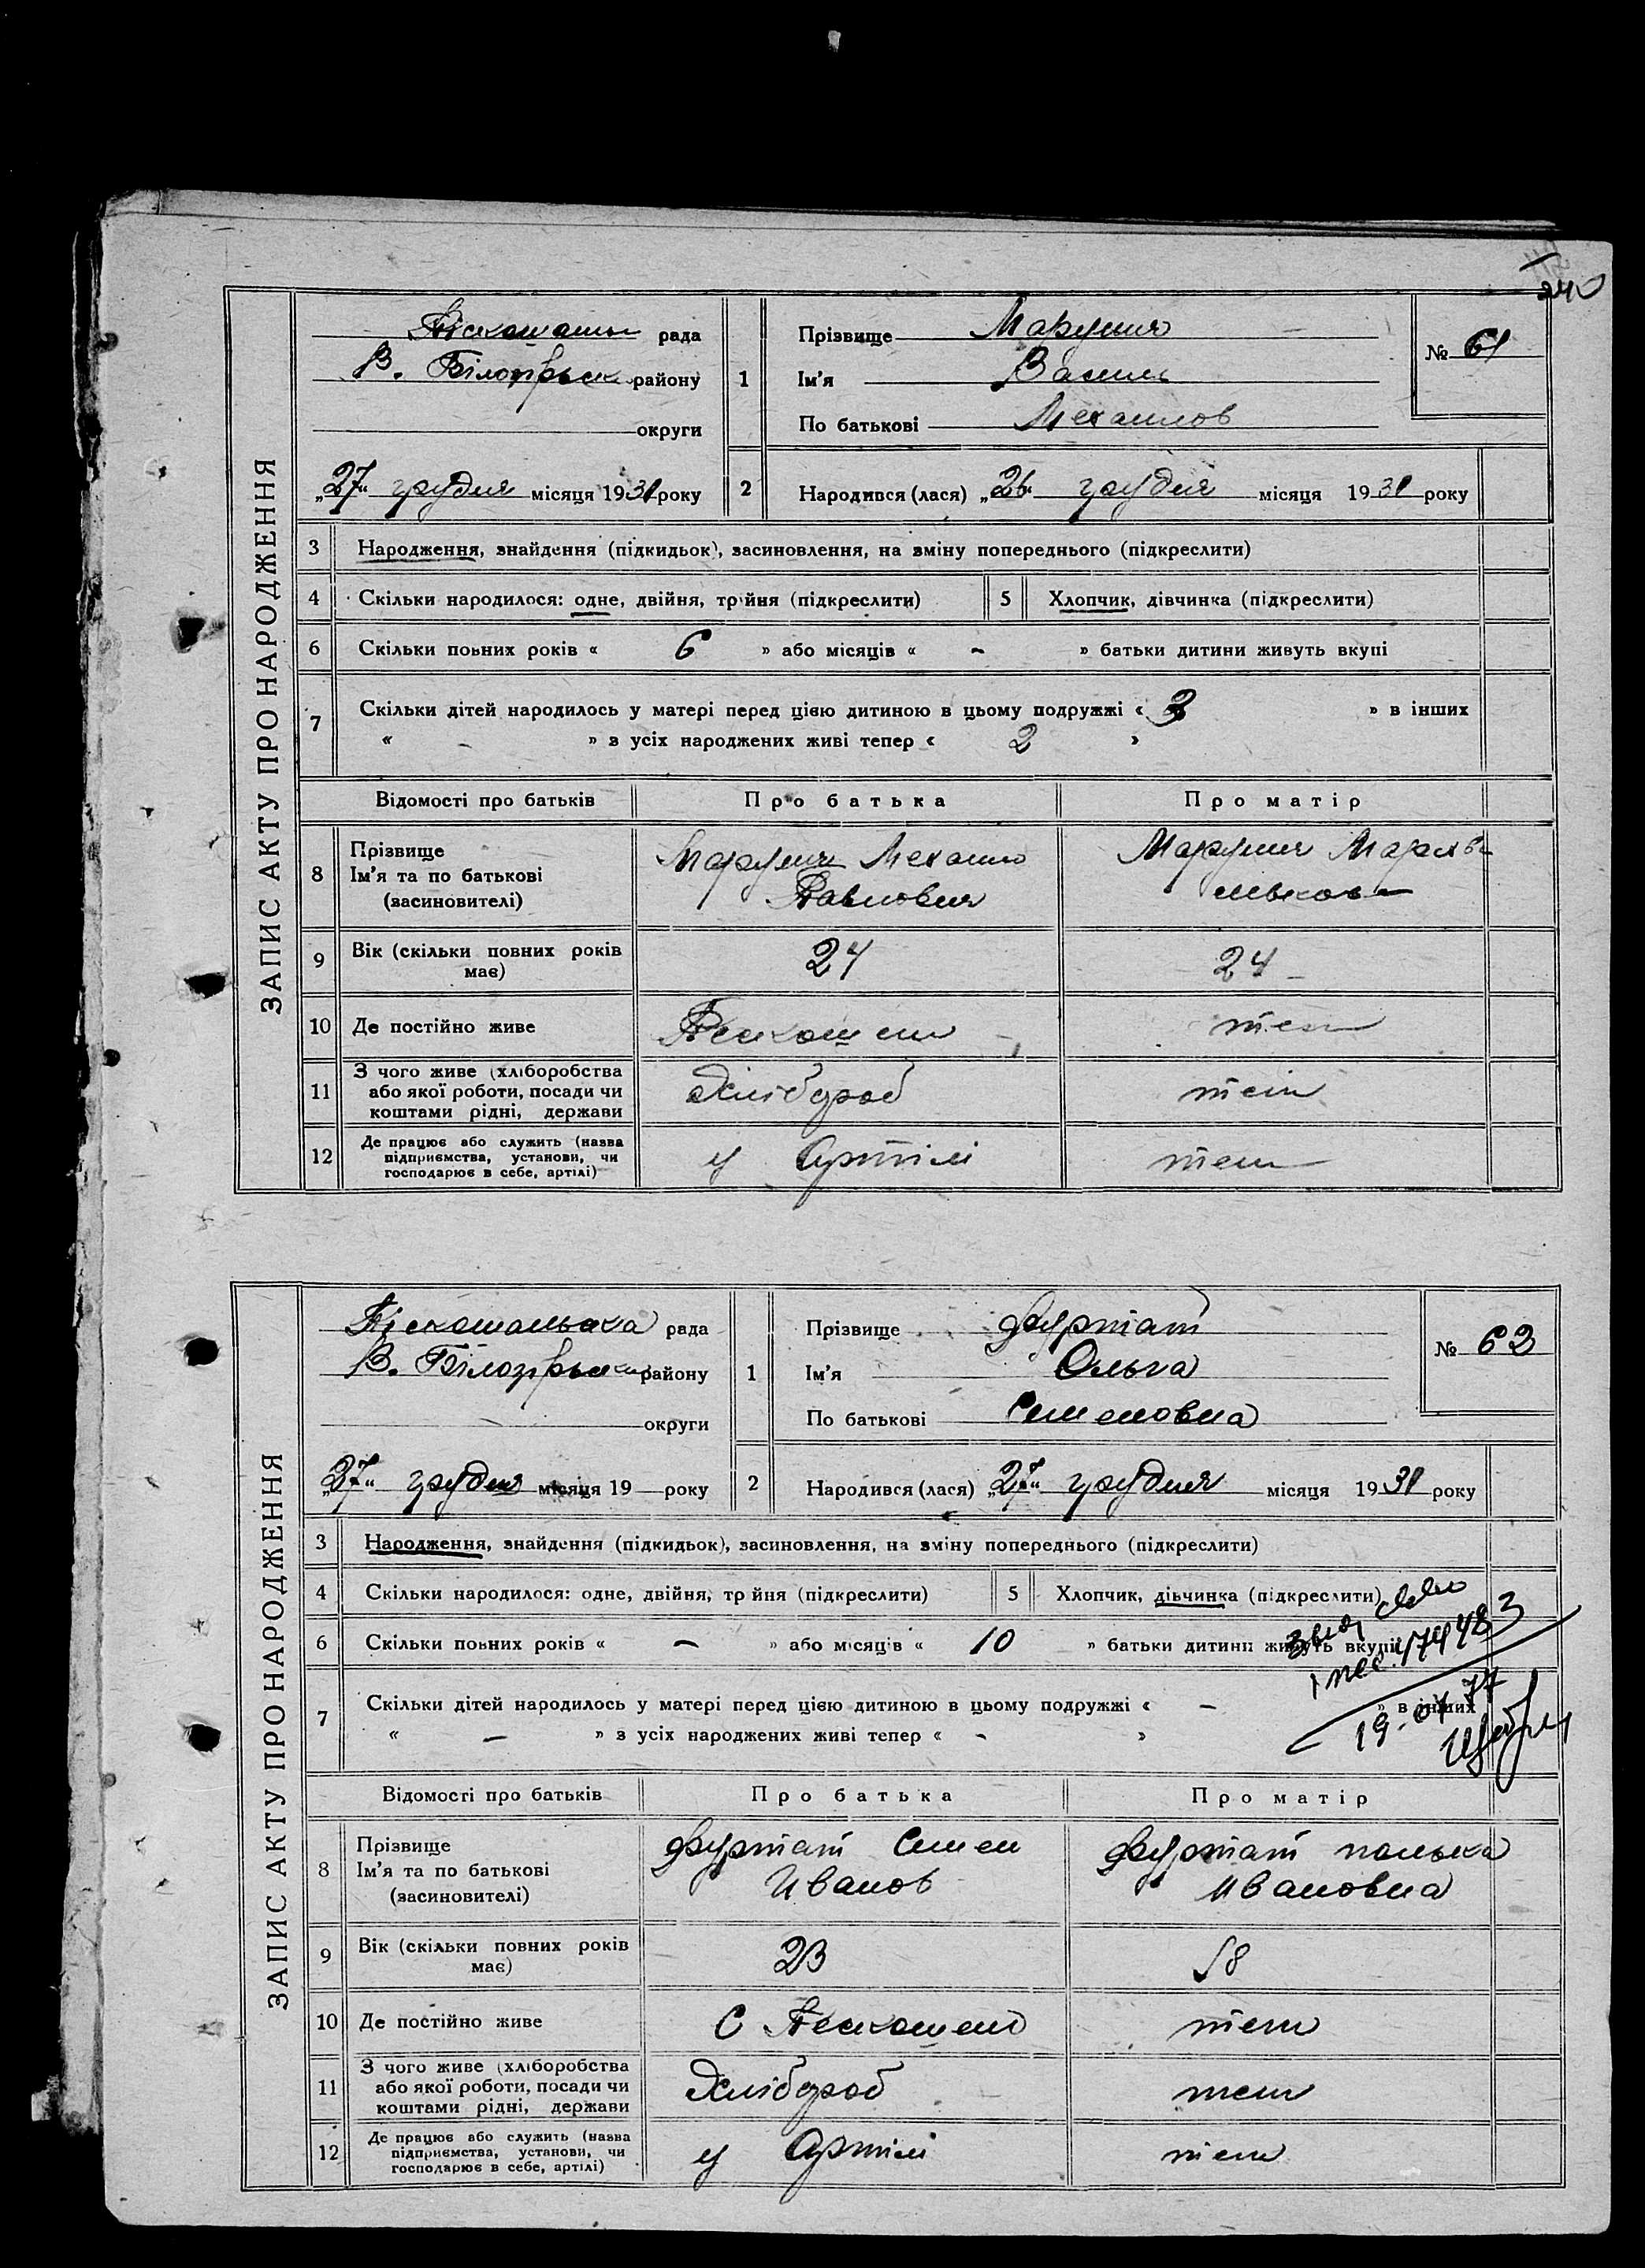 240
ЗАПИС АКТУ ПРО НАРОДЖЕННЯ
рада
В. Білозірськ району
округи
„27“ грудня місяця 1931 року
1 Прізвище Марунич
Ім'я Василь
По батькові Мехайлов
№ 61
2 Народився (лася) „26“ грудня місяця 1931 року
3 Народження, знайдення (підкидьок), засиновлення, на зміну попереднього (підкреслити)
4 Скільки народилося: одне, двійня, трійня (підкреслити) 5 Хлопчик, дівчинка (підкреслити)
6 Скільки повних років « 6 » або місяців « - » батьки дитини живуть вкупі
7 Скільки дітей народилось у матері перед цією дитиною в цьому подружжі « 3 » в інших
« - » з усіх народжених живі тепер « 2 »
Відомості про батьків Про батька Про матір
8 Прізвище
Ім'я та по батькові
(засиновителі)
Марунич Мехайло
Павлович
Марунич
9 Вік (скільки повних років
має)
24 24
10 Де постійно живе теж
11 З чого живе (хліборобства
або якої роботи, посади чи
коштами рідні, держави
Хлібороб теж
12 Де працює або служить (назва
підприємства, установи, чи
господарює в себе, артілі)
у Артілі теж
ЗАПИС АКТУ ПРО НАРОДЖЕННЯ
рада
В. Білозірськ району
округи
„27“ грудня місяця 19 — року
1 Прізвище Фуртат
Ім'я Ольга
По батькові Семеновна
№ 62
2 Народився (лася) „27“ грудня місяця 1931 року
3 Народження, знайдення (підкидьок), засиновлення, на зміну попереднього (підкреслити)
4 Скільки народилося: одне, двійня, трійня (підкреслити) 5 Хлопчик, дівчинка (підкреслити)
6 Скільки повних років « — » або місяців « 10 » батьки дитини живуть вкупі
7 Скільки дітей народилось у матері перед цією дитиною в цьому подружжі « — » в інших
« — » з усіх народжених живі тепер « - »
19.04.77
Відомості про батьків Про батька Про матір
8 Прізвище
Ім'я та по батькові
(засиновителі)
Фуртат Семен
Иванов
Фуртат палька
Ивановна
9 Вік (скільки повних років
має)
23 18
10 Де постійно живе С теж
11 З чого живе (хліборобства
або якої роботи, посади чи
коштами рідні, держави
Хлібороб теж
12 Де працює або служить (назва
підприємства, установи, чи
господарює в себе, артілі)
у Артілі теж